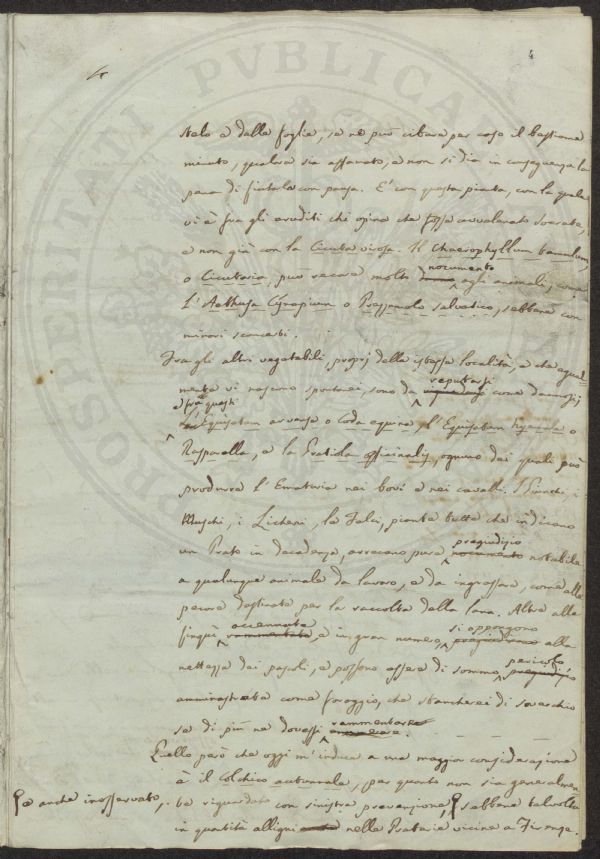 4
4
stelo e dalle foglie, se ne può cibare per caso il bestiame
minuto, qualora sia affamato, e non si dia in conseguenza la
pena di fiutarla con pausa. E' con questa pianta, con la quale
vi è fra gli eruditi chi opina che fosse avvelenato Socrate,
e non già con la Cicuta virosa. Il Chaerophyllum temulum,
o Cicutaria, può recare molto nocumento agli animali, come
l'Aethusa Cynapium o Prezzemolo salvatico, sebbene con
minori sconcerti.
Fra gli altri vegetabili, proprj della istessa località, e che egual-
mente vi nascono spontanei, sono da reputarsi come dannosj
e fra questi
l'Equisetum arvense o Coda equina, l'Equisetum hyemale o
Rasparella, e la Gratiola officinalis, ognuno dei quali può
produrre l'Ematuria nei bovi e nei cavalli. I Giunchi, i
Muschi, i Licheni, le Felci, piante tutte che indicano
un Prato in decadenza, arrecano pure pregiudizio nocumento notabile
a qualunque animale da lavoro, e da ingrassare, come alle
pecore destinate per la raccolta della lana. Altre alle
finquì accennate rammentate, e in gran numero, si oppongono pregiudicano alla
nettezza dei pascoli, e possono essere di sommo pericolo pregiudizio
amministrate come foraggio, che stancherei di soverchio
se di più ne dovessi rammentare annoverare.
Quello però che oggi m'induce a una maggior considerazione
è il Colchico autunnale, per quanto non sia generalmen
e anche inosservato, te riguardato con sinistra prevenzione, sebbene talvolta
in quantità alligni nelle Praterie vicine a Firenze.